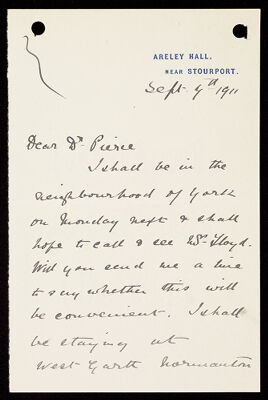 ARELEY HALL,
NEAR STOURPORT.
Sept. 9th 1911
Dear Dr. Pierce
I shall be in the
neighbourhood of York
on Monday next & shall
hope to call & see Mrs. Lloyd.
Will you send me a line
to say whether this will
be convenient. I shall
be staying at
West Garth Normanton